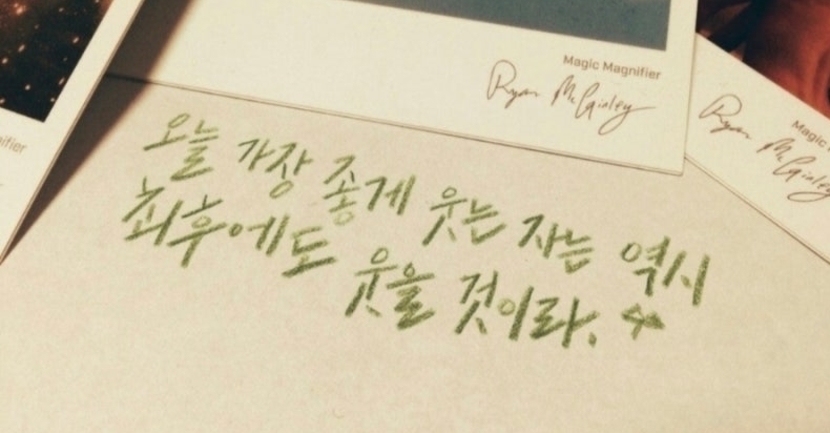 Magic Magnifier
Ryan McGinley
Magic
Ryan McGinley
nifier
오늘 가장 좋게 웃는 자는 역시
최후에도 웃을 것이라.